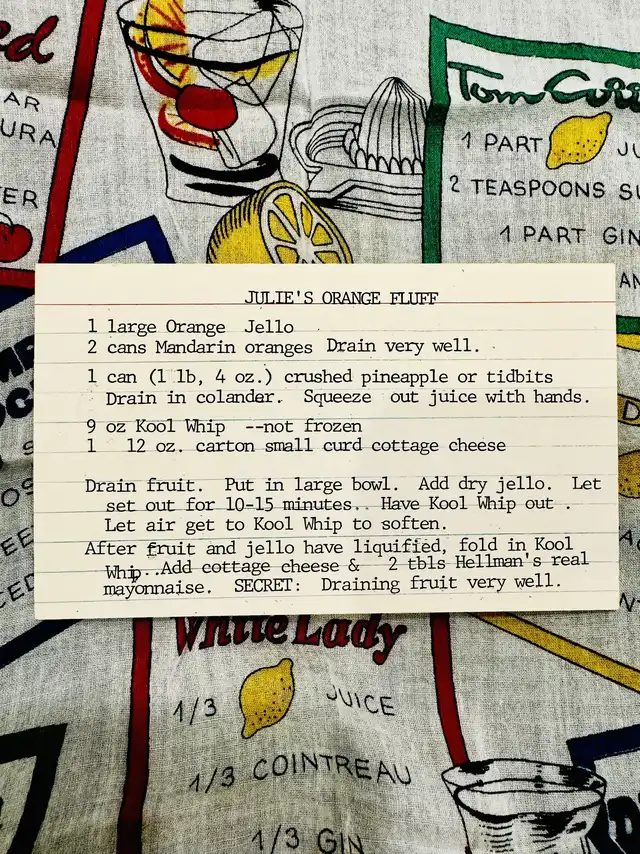 ed
AR
URA
TER
Tom
1 PART
2 TEASPOONS
1 PART GIN
AN
JULIE'S ORANGE FLUFF
1 large Orange Jello
2 cans Mandarin oranges Drain very well.
1 can (1 lb, 4 oz.) crushed pineapple or tidbits
Drain in colander. Squeeze out juice with hands.
9 oz Kool Whip --not frozen
1 12 oz. carton small curd cottage cheese
Drain fruit. Put in large bowl. Add dry jello. Let
set out for 10-15 minutes.. Have Kool Whip out .
Let air get to Kool Whip to soften.
After fruit and jello have liquified, fold in Kool
Whip..Add cottage cheese & 2 tbls Hellman's real
mayonnaise. SECRET: Draining fruit very well.
White Lady
1/3 JUICE
1/3 COINTREAU
1/3 GIN